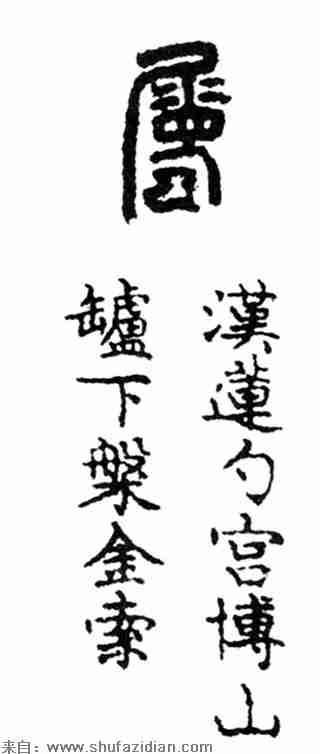 漢蓮勺宫博山
罏下槃金索
来自：www.shufazidian.com